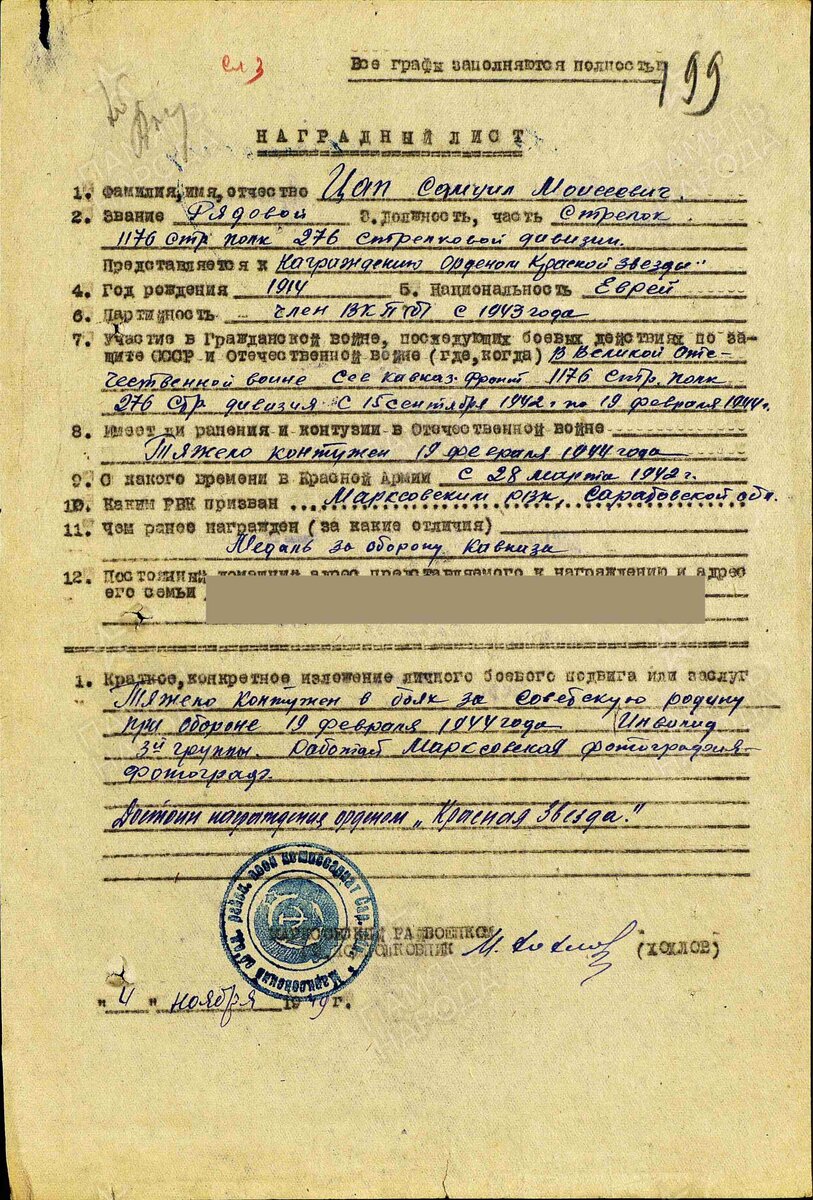 Сл 3
Все графы заполняются полностью
199
НАГРАДНЫЙ ЛИСТ
1. Фамилия, имя, отчество Цап Самуил Моисеевич.
2. Звание Рядовой 3. Должность, часть Стрелок
1176 стр. полк 276 стрелковой дивизии.
Представляется к Награждению орденом Красной Звезды"
4. Год рождения 1914 5. Национальность Еврей
6. Партийность член ВКП(б) с 1943 года
7. Участие в Гражданской войне, последующих боевых действиях по за-
щите СССР и Отечественной войне (где, когда) В Великой Оте-
чественной войне Сев Кавказ. Фронт 1176 стр. полк
276 Стр. дивизия с 15 сентября 1942 г по 19 февраля 1944 г.
8. Имеет ли ранения и контузии в Отечественной войне
Тяжело контужен 19 февраля 1944 года
9. С какого времени в Красной Армии с 28 марта 1942 г.
10. Каким РВК призван Марксовским рвк, Саратовской обл.
11. Чем ранее награжден (за какие отличия)
Медаль за оборону Кавказа
12. Постоянный домашний адрес представляемого к награждению и адрес
его семьи
1. Краткое, конкретное изложение личного боевого подвига или заслуг
Тяжело контужен в боях за Советскую родину
при обороне 19 февраля 1944 года Инвалид
3й группы. Работает Марксовская фотография-
фотограф.
Достоин награждения орденом „Красная Звезда."
МАРКСОВСКИЙ РАЙВОЕНКОМ
ПОДПОЛКОВНИК М. Хохлов (ХОХЛОВ)
"4" ноября 1949 г.